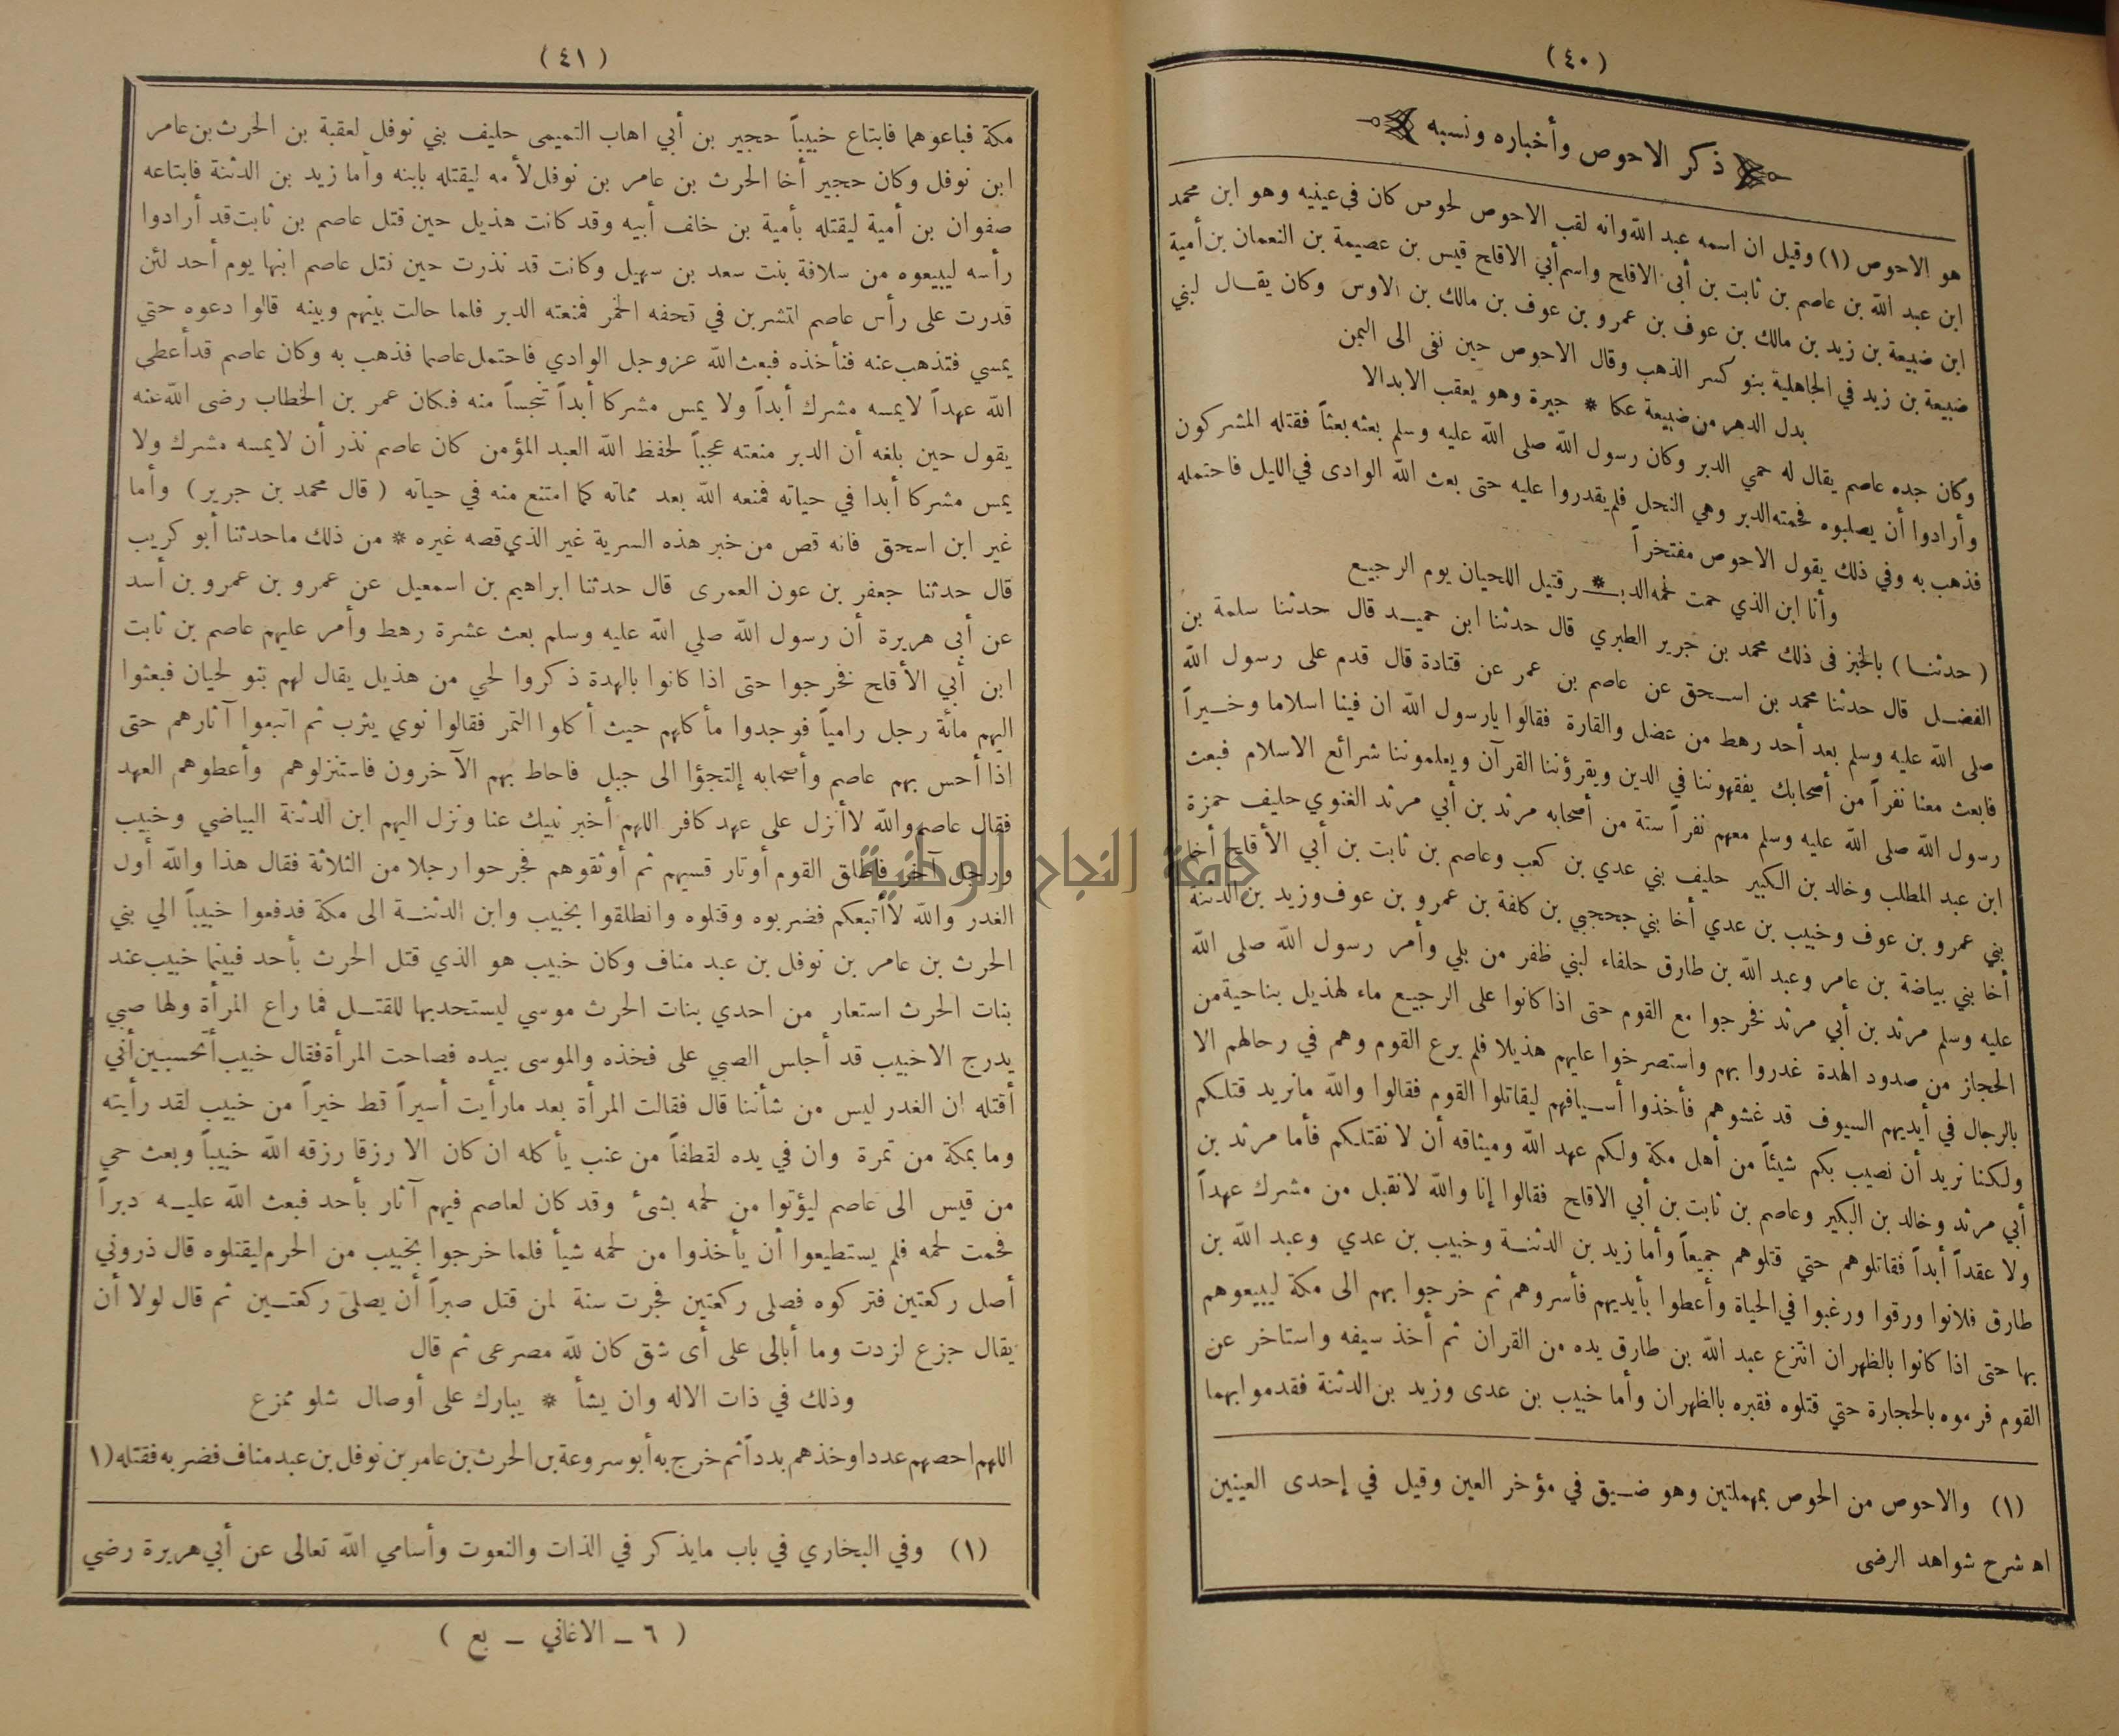 (٤٠)
ذكر الاحوص وأخباره ونسبه
هو الاحوص (١) وقيل ان اسمه عبد الله وانه لقب الاحوص لحوص كان في عينيه وهو ابن محمد
ابن عبد الله بن عاصم بن ثابت بن أبى الاقلح واسم أبي الاقلح قيس بن عصيمة بن النعمان بن أمية
ابن ضبيعة بن زيد بن مالك بن عوف بن عمرو بن عوف بن مالك بن الاوس وكان يقال لبني
ضبيعة بن زيد في الجاهلية بنو كسر الذهب وقال الاحوص حين نفى الى اليمن
بدل الدهر من ضبيعة عكا * جيرة وهو يعقب الابدالا
وكان جده عاصم يقال له حمي الدبر وكان رسول الله صلى الله عليه وسلم بعثه بعثاً فقتله المشركون
وأرادوا أن يصلبوه فحمته الدبر وهي النحل فلم يقدروا عليه حتى بعث الله الوادى في الليل فاحتمله
فذهب به وفي ذلك يقول الاحوص مفتخراً
وأنا ابن الذي حمت لحمه الدبـ * ـر قتيل اللحيان يوم الرجيع
(حدثنا) بالخبز فى ذلك محمد بن جرير الطبري قال حدثنا ابن حميد قال حدثنا سلمة بن
الفضل قال حدثنا محمد بن اسحق عن عاصم بن عمر عن قتادة قال قدم على رسول الله
صلى الله عليه وسلم بعد أحد رهط من عضل والقارة فقالوا يارسول الله ان فينا اسلاما وخيراً
فابعث معنا نفراً من أصحابك يفقهوننا في الدين ويقرؤننا القرآن ويعلموننا شرائع الاسلام فبعث
رسول الله صلى الله عليه وسلم معهم نفراً ستة من أصحابه مرثد بن أبي مرثد الغنوي حليف حمزة
ابن عبد المطلب وخالد بن البكير حليف بني عدي بن كعب وعاصم بن ثابت بن أبي الأقلح أخا
بني عمرو بن عوف وخبيب بن عدي أخا بني جحجبي بن كلفة بن عمرو بن عوف وزيد بن الدثنة
أخا بني بياضة بن عامر وعبد الله بن طارق حلفاء لبني ظفر من بلي وأمر رسول الله صلى الله
عليه وسلم مرثد بن أبي مرثد فخرجوا مع القوم حتى اذا كانوا على الرجيع ماء لهذيل بناحية من
الحجاز من صدود الهدة غدروا بهم واستصرخوا عليهم هذيلا فلم يرع القوم وهم في رحالهم الا
بالرجال في أيديهم السيوف قد غشوهم فأخذوا أسيافهم ليقاتلوا القوم فقالوا والله مانريد قتلكم
ولكنا نريد أن نصيب بكم شيئاً من أهل مكة ولكم عهد الله وميثاقه أن لا نقتلكم فأما مرثد بن
أبي مرثد وخالد بن البكير وعاصم بن ثابت بن أبي الاقلح فقالوا إنا والله لانقبل من مشرك عهداً
ولا عقداً أبداً فقاتلوهم حتي قتلوهم جميعاً وأما زيد بن الدثنة وخبيب بن عدي وعبد الله بن
طارق فلانوا ورقوا ورغبوا في الحياة وأعطوا بأيديهم فأسروهم ثم خرجوا بهم الى مكة ليبيعوهم
بها حتى اذا كانوا بالظهران انتزع عبد الله بن طارق يده من القران ثم أخذ سيفه واستاخر عن
القوم فرموه بالحجارة حتي قتلوه فقبره بالظهران وأما خبيب بن عدى وزيد بن الدثنة فقدموا بهما
(١) والاحوص من الحوص بمهملتين وهو ضيق في مؤخر العين وقيل في إحدى العينين
اه شرح شواهد الرضى
(٤١)
مكة فباعوهما فابتاع خبيباً حجير بن أبي اهاب التميمى حليف بني نوفل لعقبة بن الحرث بن عامر
ابن نوفل وكان حجير أخا الحرث بن عامر بن نوفل لأمه ليقتله بابنه وأما زيد بن الدثنة فابتاعه
صفوان بن أمية ليقتله بأمية بن خلف أبيه وقد كانت هذيل حين قتل عاصم بن ثابت قد أرادوا
رأسه ليبيعوه من سلافة بنت سعد بن سهيل وكانت قد نذرت حين قتل عاصم ابنها يوم أحد لئن
قدرت على رأس عاصم لتشربن في قحفه الخمر فمنعته الدبر فلما حالت بينهم وبينه قالوا دعوه حتي
يمسي فتذهب عنه فنأخذه فبعث الله عز وجل الوادي فاحتمل عاصما فذهب به وكان عاصم قد أعطى
الله عهداً لايمسه مشرك أبداً ولا يمس مشركا أبداً تنجساً منه فكان عمر بن الخطاب رضى الله عنه
يقول حين بلغه أن الدبر منعته عجباً لحفظ الله العبد المؤمن كان عاصم نذر أن لايمسه مشرك ولا
يمس مشركا أبدا في حياته فمنعه الله بعد مماته كما امتنع منه في حياته (قال محمد بن جرير) وأما
غير ابن اسحق فانه قص من خبر هذه السرية غير الذي قصه غيره * من ذلك ماحدثنا أبو كريب
قال حدثنا جعفر بن عون العمرى قال حدثنا ابراهيم بن اسمعيل عن عمرو بن عمرو بن أسد
عن أبي هريرة أن رسول الله صلي الله عليه وسلم بعث عشرة رهط وأمر عليهم عاصم بن ثابت
ابن أبي الأقلح فخرجوا حتى اذا كانوا بالهدة ذكروا لحي من هذيل يقال لهم بنو لحيان فبعثوا
اليهم مائة رجل رامياً فوجدوا مأكلهم حيث أكلوا التمر فقالوا نوي يثرب ثم اتبعوا آثارهم حتى
اذا أحس بهم عاصم وأصحابه إلتجؤا الى جبل فاحاط بهم الآخرون فاستنزلوهم وأعطوهم العهد
فقال عاصم والله لاأنزل على عهد كافر اللهم أخبر نبيك عنا ونزل اليهم ابن الدثنة البياضي وخبيب
ورجل آخر فاطلق القوم أوتار قسيهم ثم أوثقوهم فجرحوا رجلا من الثلاثة فقال هذا والله أول
الغدر والله لاأتبعكم فضربوه وقتلوه وانطلقوا بخبيب وابن الدثنة الى مكة فدفعوا خبيباً الي بني
الحرث بن عامر بن نوفل بن عبد مناف وكان خبيب هو الذي قتل الحرث بأحد فبينما خبيب عند
بنات الحرث استعار من احدي بنات الحرث موسي ليستحد بها للقتل فما راع المرأة ولها صبي
يدرج الاخبيب قد أجلس الصبي على فخذه والموسى بيده فصاحت المرأة فقال خبيب أتحسبين أني
أقتله ان الغدر ليس من شأننا قال فقالت المرأة بعد مارأيت أسيراً قط خيراً من خبيب لقد رأيته
وما بمكة من تمرة وان في يده لقطفاً من عنب يأكله ان كان الا رزقا رزقه الله خبيباً وبعث حي
من قيس الى عاصم ليؤتوا من لحمه بشئ وقد كان لعاصم فيهم آثار بأحد فبعث الله عليه دبراً
فحمت لحمه فلم يستطيعوا أن يأخذوا من لحمه شيأ فلما خرجوا بخبيب من الحرم ليقتلوه قال ذروني
أصل ركعتين فتركوه فصلى ركعتين فجرت سنة لمن قتل صبراً أن يصلى ركعتين ثم قال لولا أن
يقال جزع لزدت وما أبالى على أى شق كان لله مصرعى ثم قال
وذلك في ذات الاله وان يشأ * يبارك على أوصال شلو ممزع
اللهم احصهم عددا وخذهم بدداً ثم خرج به أبو سروعة بن الحرث بن عامر بن نوفل بن عبد مناف فضربه فقتله (١
(١) وفي البخاري في باب مايذكر في الذات والنعوت وأسامي الله تعالى عن أبي هريرة رضي
(٦ ــ الاغاني ــ بع)
جامعة النجاح الوطنية